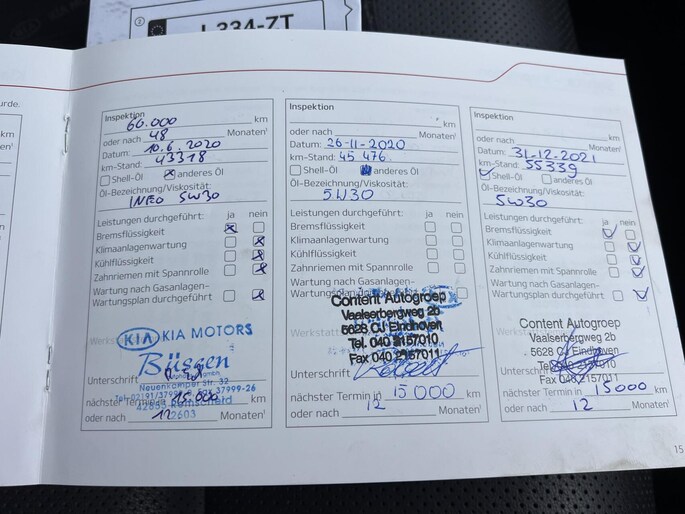 L334-ZT
urde.
km
Inspektion
60.000 km
oder nach 48 Monaten¹
Datum: 10.6.2020
km-Stand: 43318
Shell-Öl anderes Öl
Öl-Bezeichnung/Viskosität:
INEO 5W30
Leistungen durchgeführt: ja nein
Bremsflüssigkeit
Klimaanlagenwartung
Kühlflüssigkeit
Zahnriemen mit Spannrolle
Wartung nach Gasanlagen-
Wartungsplan durchgeführt
KIA KIA MOTORS
Büssen
Neuenkamper Str. 32
Unterschrift
nächster Termin in 15.000 km
oder nach 12 Monaten¹
Inspektion
km
oder nach Monaten¹
Datum: 26-11-2020
km-Stand: 45 476
Shell-Öl anderes Öl
Öl-Bezeichnung/Viskosität:
5W30
Leistungen durchgeführt: ja nein
Bremsflüssigkeit
Klimaanlagenwartung
Kühlflüssigkeit
Zahnriemen mit Spannrolle
Wartung nach Gasanlagen-
Content Autogroep
Vaalserbergweg 2b
5628 CJ Eindhoven
Tel. 040 2157010
Fax 040 2157011
Unterschrift
nächster Termin in 15000 km
oder nach 12 Monaten¹
Inspektion
km
oder nach Monaten¹
Datum: 31-12-2021
km-Stand: 55339
Shell-Öl anderes Öl
Öl-Bezeichnung/Viskosität:
5W30
Leistungen durchgeführt: ja nein
Bremsflüssigkeit
Klimaanlagenwartung
Kühlflüssigkeit
Zahnriemen mit Spannrolle
Wartung nach Gasanlagen-
Wartungsplan durchgeführt
Content Autogroep
Vaalserbergweg 2b
5628 CJ Eindhoven
Tel. 040 2157010
Fax 040 2157011
nächster Termin in 15000 km
oder nach 12 Monaten¹
15